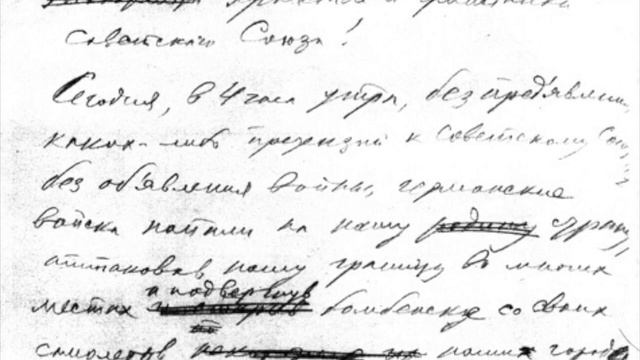 граждане и гражданки
Советского Союза!
Сегодня, в 4 часа утра, без предъявления
каких-либо претензий к Советскому Союзу
без об'явления войны, германские
войска напали на нашу родину страну,
атаковав нашу границу во многих
местах и подвергнув бомбежке со своих
самолетов наши города